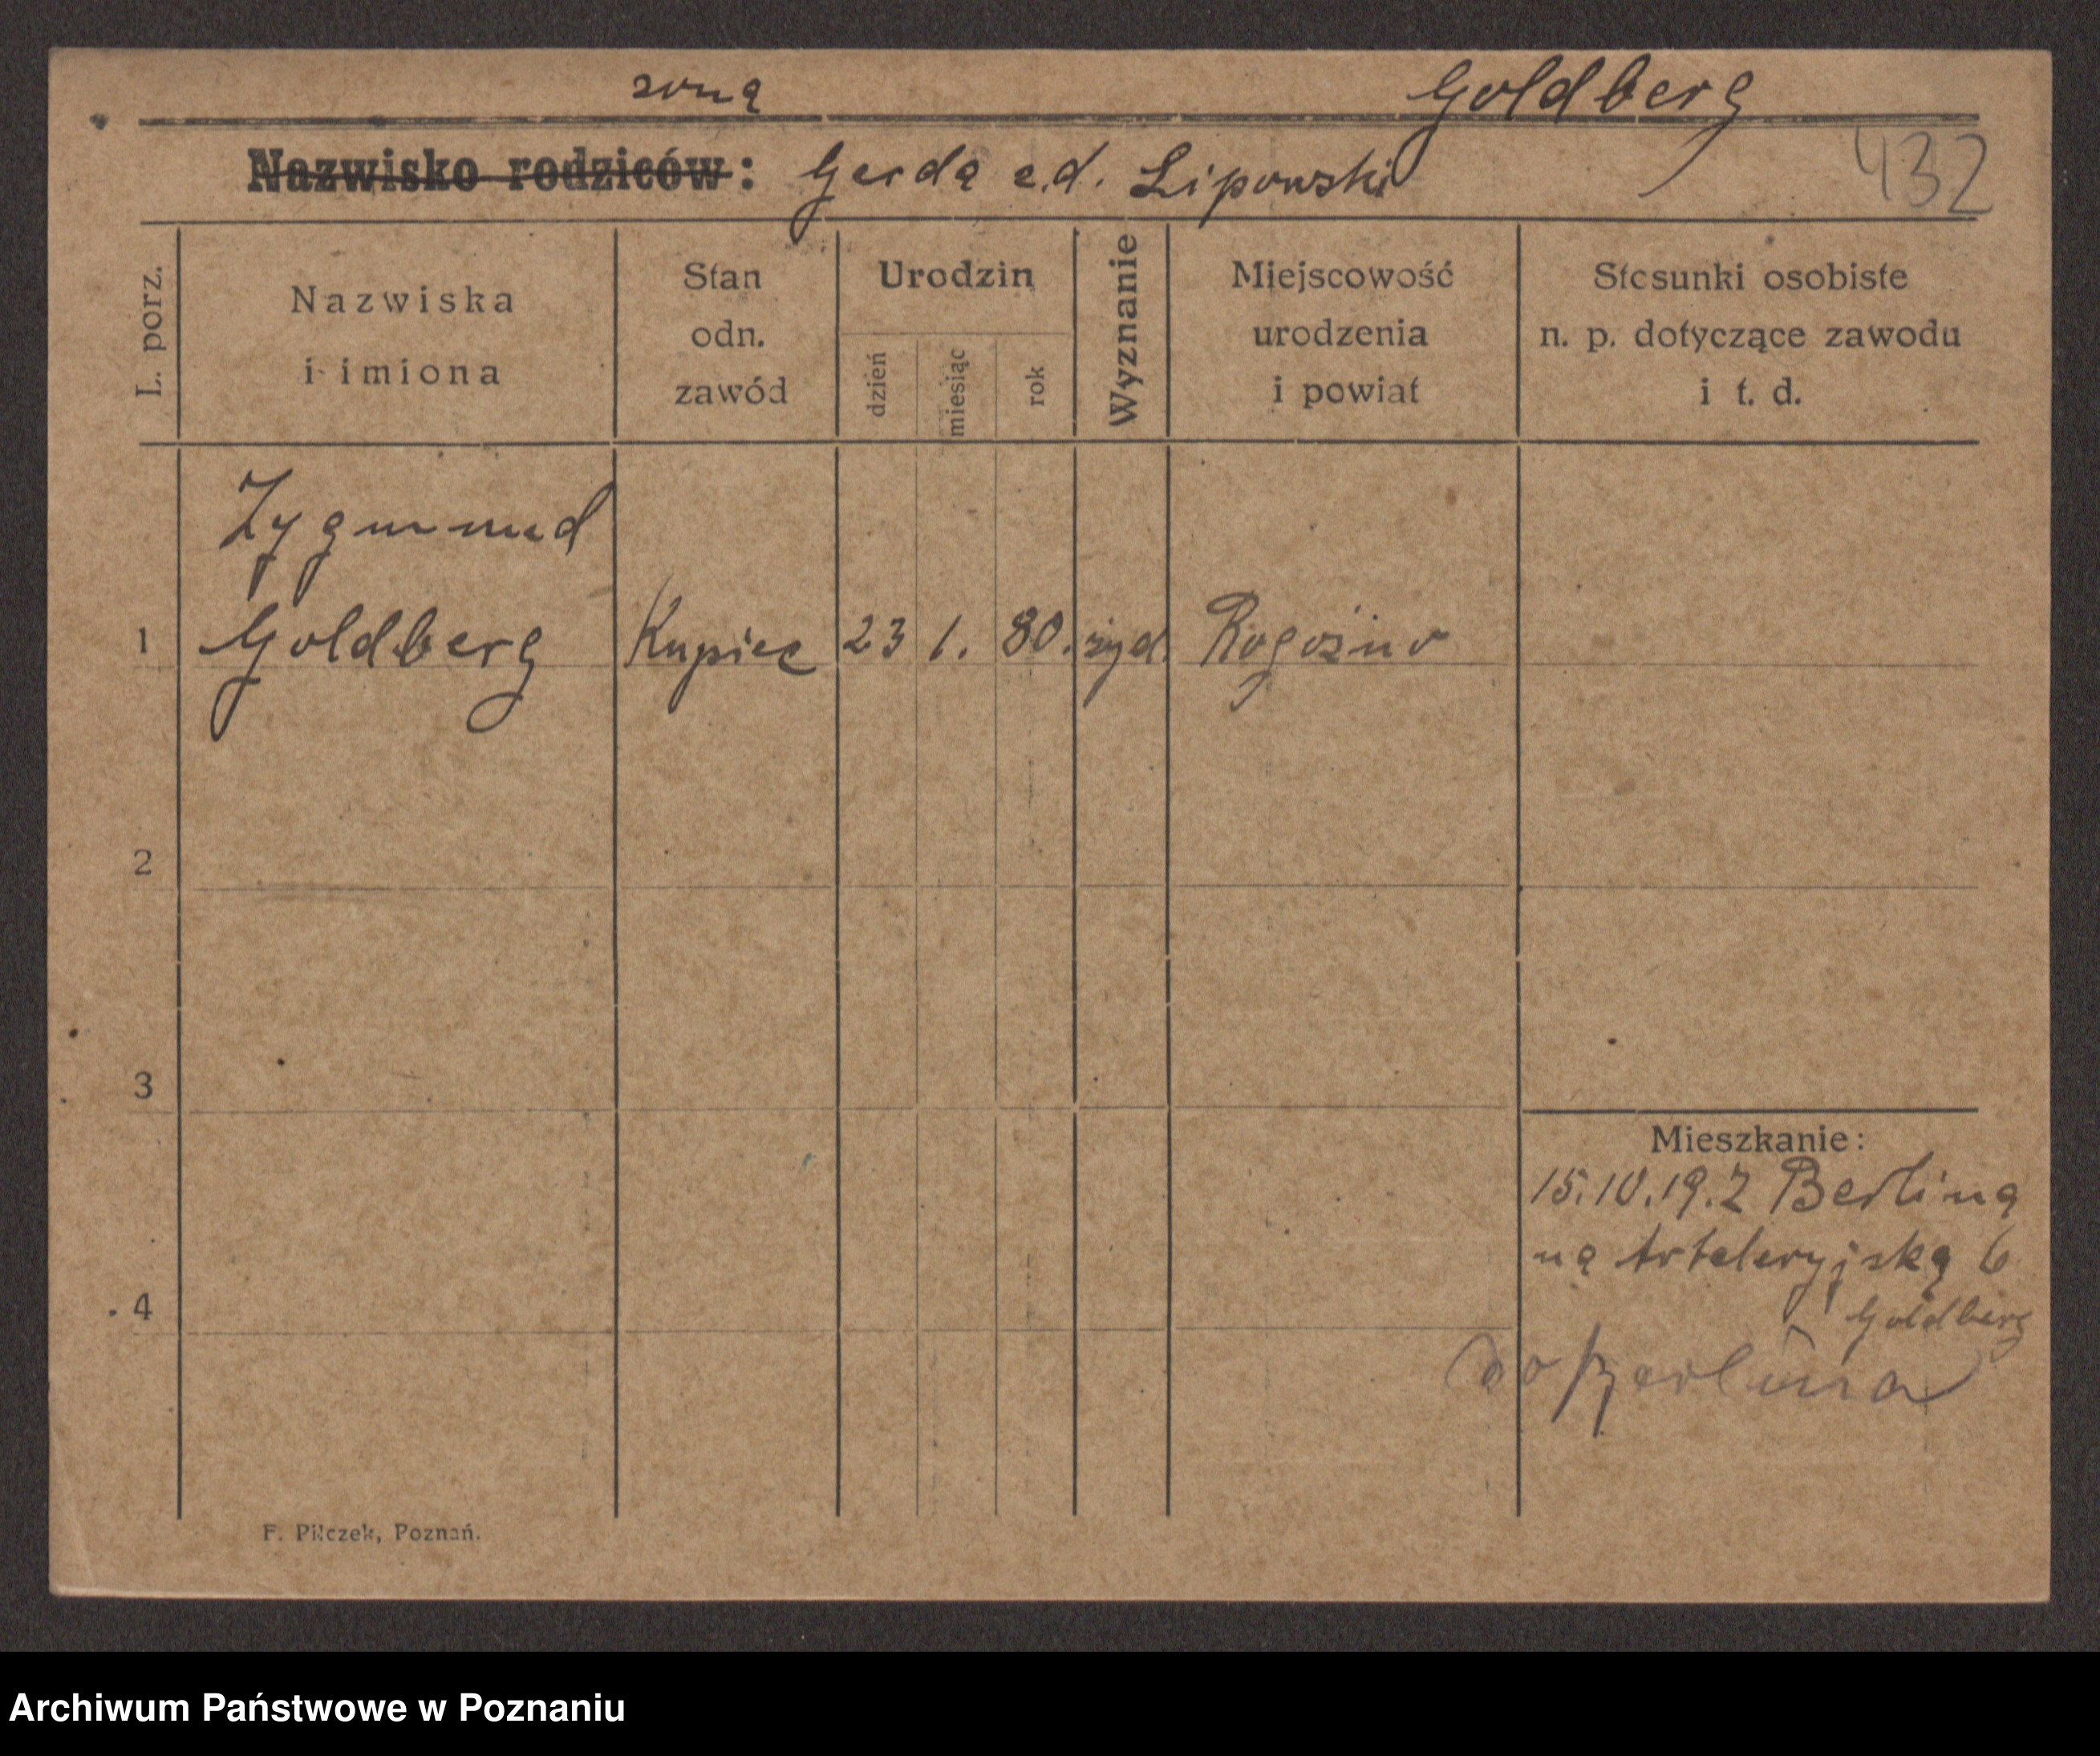 żona Goldberg
Nazwisko rodziców: Gerda e.d. Lipowski 432
L. porz.
Nazwiska
i imiona
Stan
odn.
zawód
Urodzin
dzień
miesiąc
rok
Wyznanie
Miejscowość
urodzenia
i powiat
Stosunki osobiste
n. p. dotyczące zawodu
i t. d.
Zygmund
1 Goldberg Kupiec 23 1. 80. żyd. Rogoźno
2
3
Mieszkanie:
15.10.19. z Berlina
na Arteleryjską 6
4
Goldberg
do Berlina
F. Pilczek, Poznań.
Archiwum Państwowe w Poznaniu